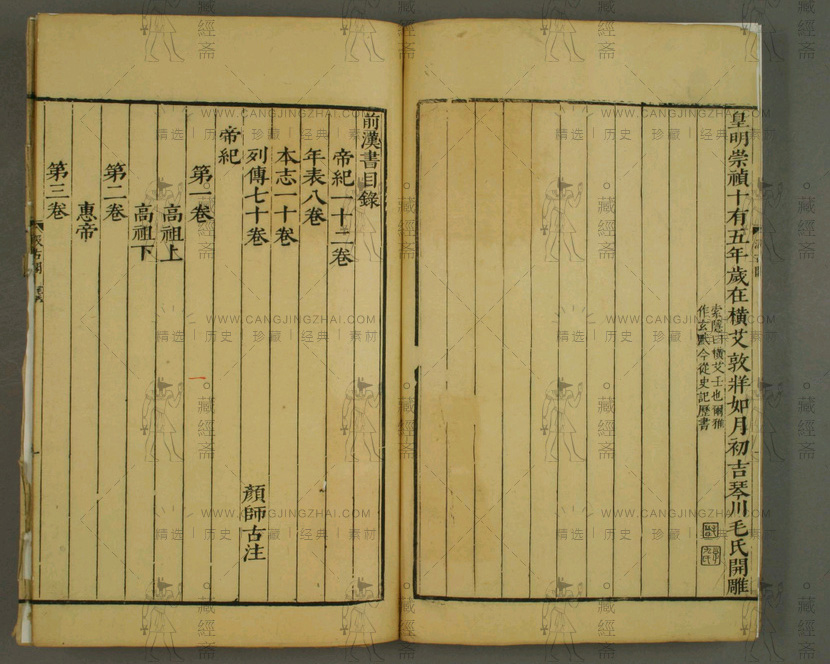 皇明崇禎十有五年歲在橫艾敦牂如月初吉琴川毛氏開雕
索隱曰橫艾壬也爾雅
作玄黓今從史記歷書
前漢書目錄
帝紀一十二卷
年表八卷
本志一十卷
列傳七十卷
顏師古注
帝紀
第一卷
高祖上
高祖下
第二卷
惠帝
第三卷
WWW.CANGJINGZHAI.COM
精选 | 历史 | 珍藏 | 经典 | 素材
藏經斋